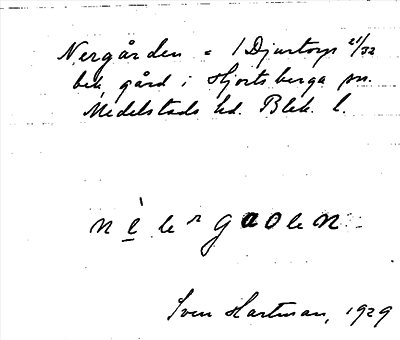 Nergården = 1 Djurtorp 21/32
bek. gård i Hjortsberga sn.
Medelstads hd. Blek. l.
Sven Hartman, 1929